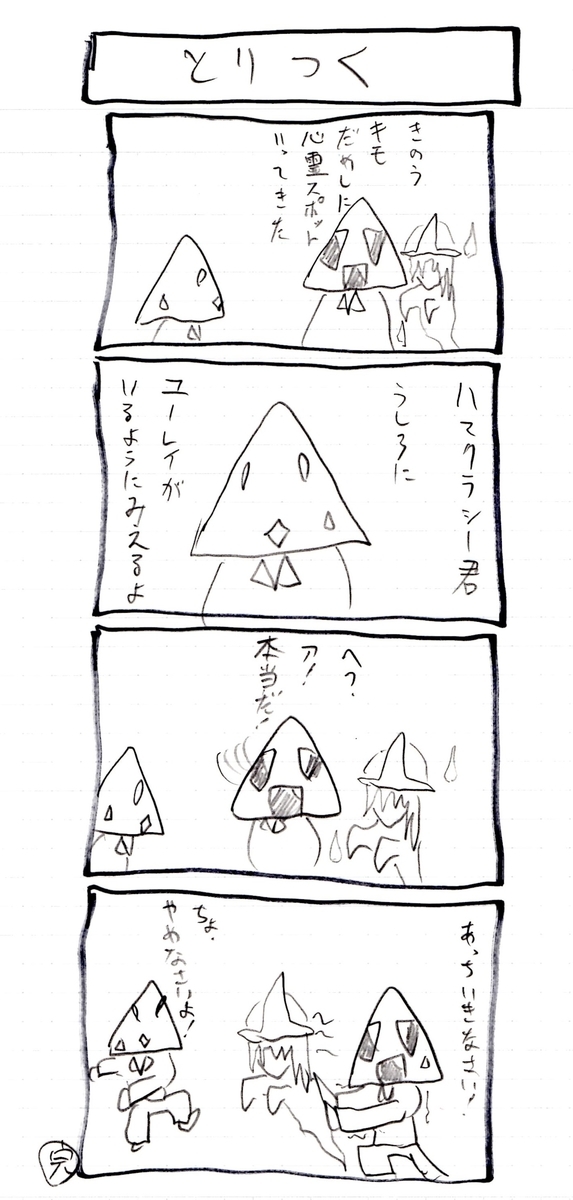 とりっく
きのう
キモ
だめしに
心霊スポット
いってきた
ハマクラシー君
うしろに
ユーレイが
いるようにみえるよ
へ？
ア！
本当だ！
あっちいきなさい！
ちょ、
やめなさいよ！
完